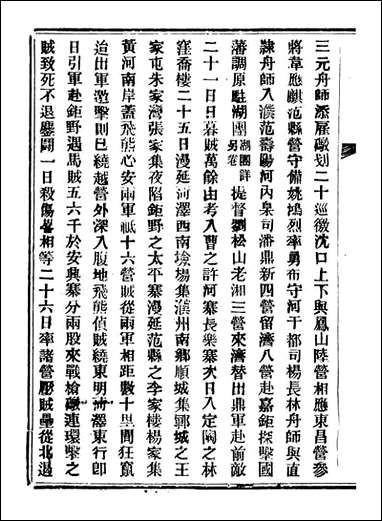 三元舟師添雇礮划二十巡徼沈口上下與鳳山陸營相應東昌營參
將韋應麒范縣營守備姚鴻烈率勇布守河干都司楊長林舟師與直
隸舟師入濮范壽陽河內臬司潘鼎新四營留濟八營赴嘉鉅探擊國
藩調原駐湖團湖團詳另卷提督劉松山老湘三營來濟替出鼎軍赴前敵
二十一日日暮賊萬餘由考入曹之許河寨長樂寨次日入定陶之林
窪喬樓二十五日漫延河澤西南境揚集濮州南鄉順城集鄆城之王
家屯朱家灣張家集夜陷鉅野之太平寨漫延范縣之李家樓楊家集
黃河南岸蓋飛熊心安兩軍祇十六營賊從兩軍相距數十里間狂竄
迨出軍邀擊則已繞越營外深入腹地飛熊偵賊繞東明河澤東行即
日引軍赴鉅野遇馬賊五六千於安興寨分兩股來戰槍礮連環擊之
賊致死不退鏖鬬一日殺傷畧相等二十六日率諸營壓賊壘從北退